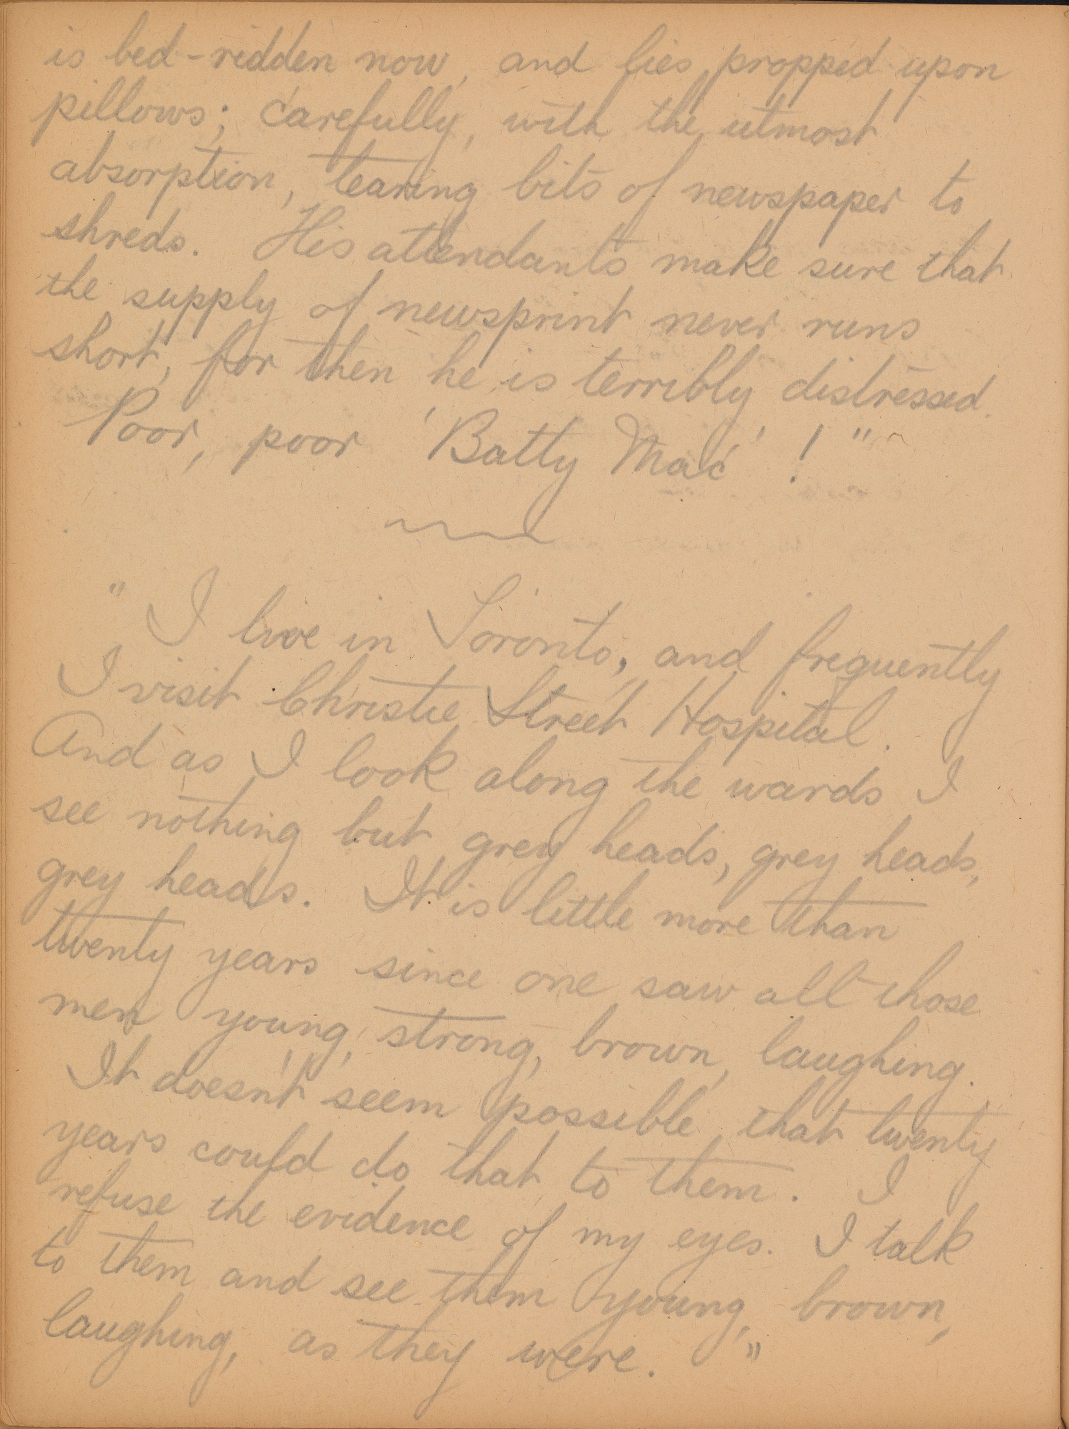 is bed-ridden now, and lies propped upon
pillows; carefully, with the utmost
absorption, tearing bits of newspaper to
shreds. His attendants make sure that
the supply of newsprint never runs
short, for then he is terribly distressed.
Poor, poor 'Batty Mac'! "~
"I live in Toronto, and frequently
I visit Christie Street Hospital.
And as I look along the wards I
see nothing but grey heads, grey heads,
grey heads. It is little more than
twenty years since one saw all those
men young, strong, brown, laughing.
It doesn't seem possible that twenty
years could do that to them. I
refuse the evidence of my eyes. I talk
to them and see them young, brown,
laughing, as they were. "